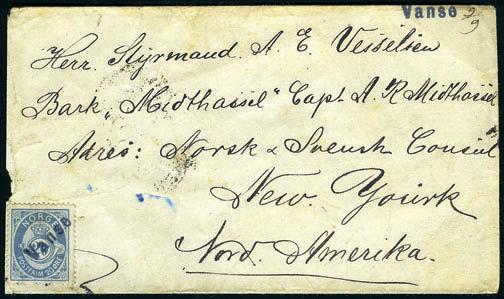 Vanse 2/9
Herr. Styrmand. A. E. Vesselsen
Bark „Midthassel" Capt. A. R Midthassel
Adres: Norsk & Svensk Consul
New. Yourk
Nord. Amerika.
NORGE
Vanse
POSTFRIM 20 ØRE